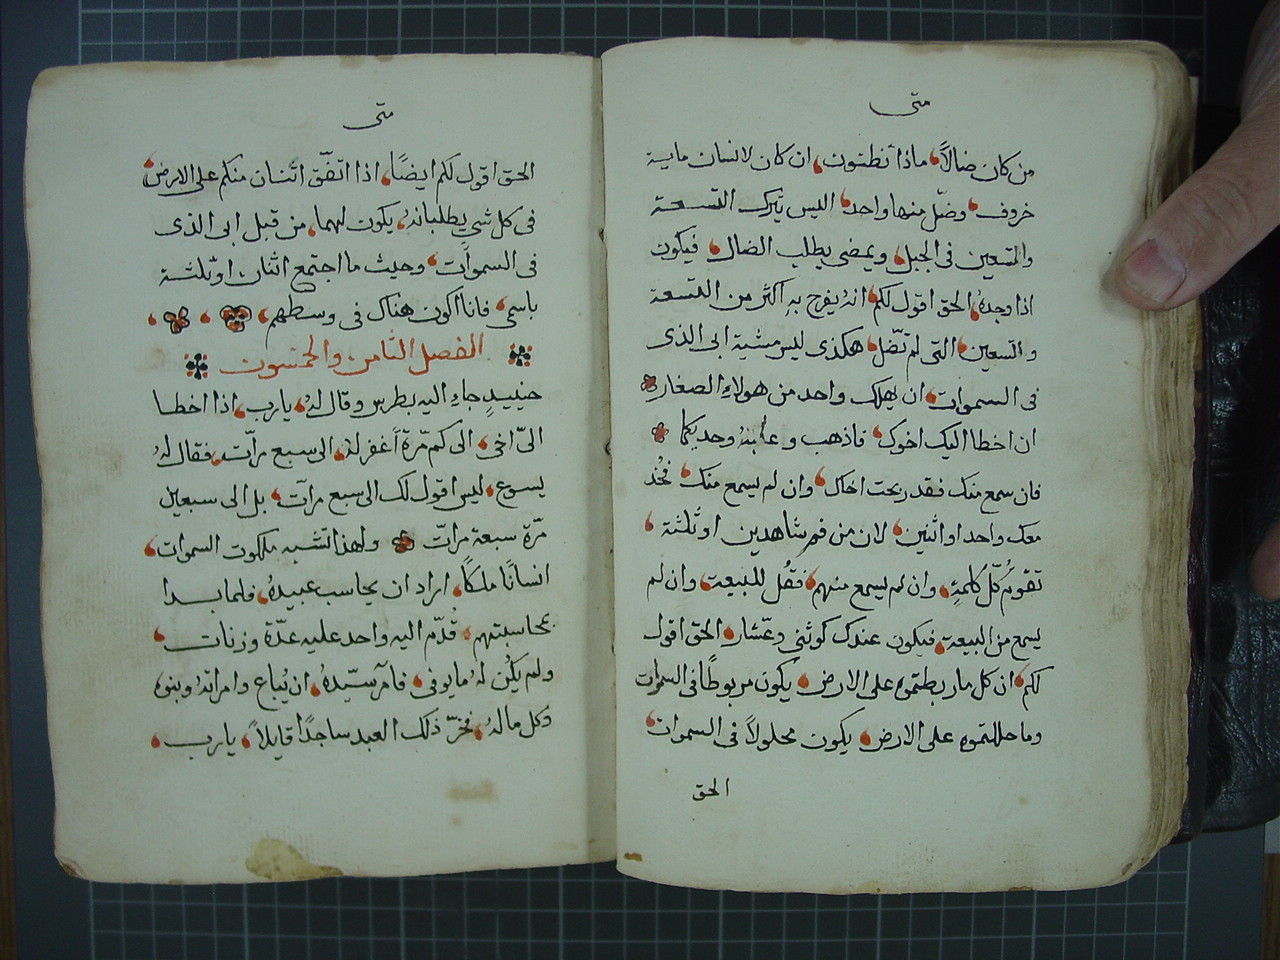 متى
من كان ضالاً ماذا تظنون ان كان لانسان ماية
خروف وضلّ منها واحد اليس يترك التسعة
والتسعين فى الجبل ويمضى يطلب الضال فيكون
اذا وجدهُ الحق اقول لكم انهُ يفرح بهِ اكثر من التسعة
والتسعين التى لم تضل هكذى ليس مشية ابى الذى
فى السموات ان يهلك واحد من هولاءِ الصغار
ان اخطا اليك اخوك فاذهب وعاتبهُ وحديكما
فان سمع منك فقد ربحت اخاك وان لم يسمع منك فخُذ
معك واحد او اثنين لان من فم شاهدين او ثلثة
تقوم كلّ كلمةٍ وان لم يسمع منهم فقُل للبيعة وان لم
يسمع من البيعة فيكون عندك كوثنى وعشار الحق اقول
لكم ان كل ما ربطتموه على الارض يكون مربوطًا فى السموات
وما حللتموه على الارض يكون محلولاً فى السموات
الحق
متى
الحق اقول لكم ايضًا اذا اتفّق اثنان منكم على الارض
فى كل شى يطلبانهُ يكون لهما من قبل ابى الذى
فى السموات وحيث ما اجتمع اثنان او ثلثة
باسمى فانا اكون هناك فى وسطهم
الفصل الثامن والخمسون
حينيدٍ جاءِ اليه بطرس وقال لهُ يارب اذا اخطا
الىّ اخى الى كم مّرة اَغفر لهُ الى سبع مراّت فقال لهُ
يسوع ليس اقول لك الى سبع مراّت بل الى سبعين
مّرة سبعة مراّت ولهذا تشبه ملكوت السموات
انسانًا ملكًا اراد ان يحاسب عبيدهُ فلما بدا
بمحاسبتهم قُدّم اليه واحد عليه عدّة وزنات
ولم يكُن لهُ ما يوفى فامر سيّدهُ ان يُباع وامراتهُ وبنوه
وكل مالهُ فخرّ ذلك العبد ساجدًا قايلاً يارب